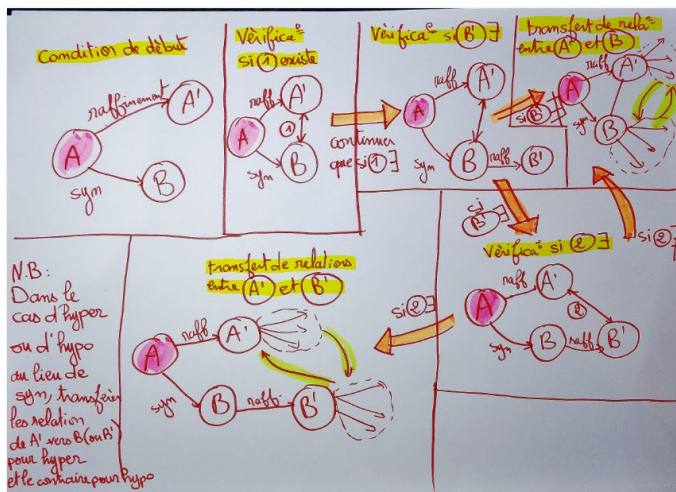 Condition de début
raffinement
A'
A
sym
B
Vèrifica°
si ① existe
raff
A'
A
①
sym
B
continuer
que si ① ∃
Vèrifica° si B' ∃
raff
A'
A
sym
B
raff
B'
transfert de rela°
entre A' et B
raff
A'
A
si B' ∄
sym
B
si B' ∃
si ② ∄
Vèrifica° si ② ∃
raff
A'
A
②
sym
B
raff
B'
si ② ∃
transfert de relations
entre A' et B'
raff
A'
A
sym
B
raff
B'
N.B:
Dans le
cas d'hyper
ou d'hypo
au lieu de
sym, transférer
les relation
de A' vers B (ou B')
pour hyper
et le contraire pour hypo